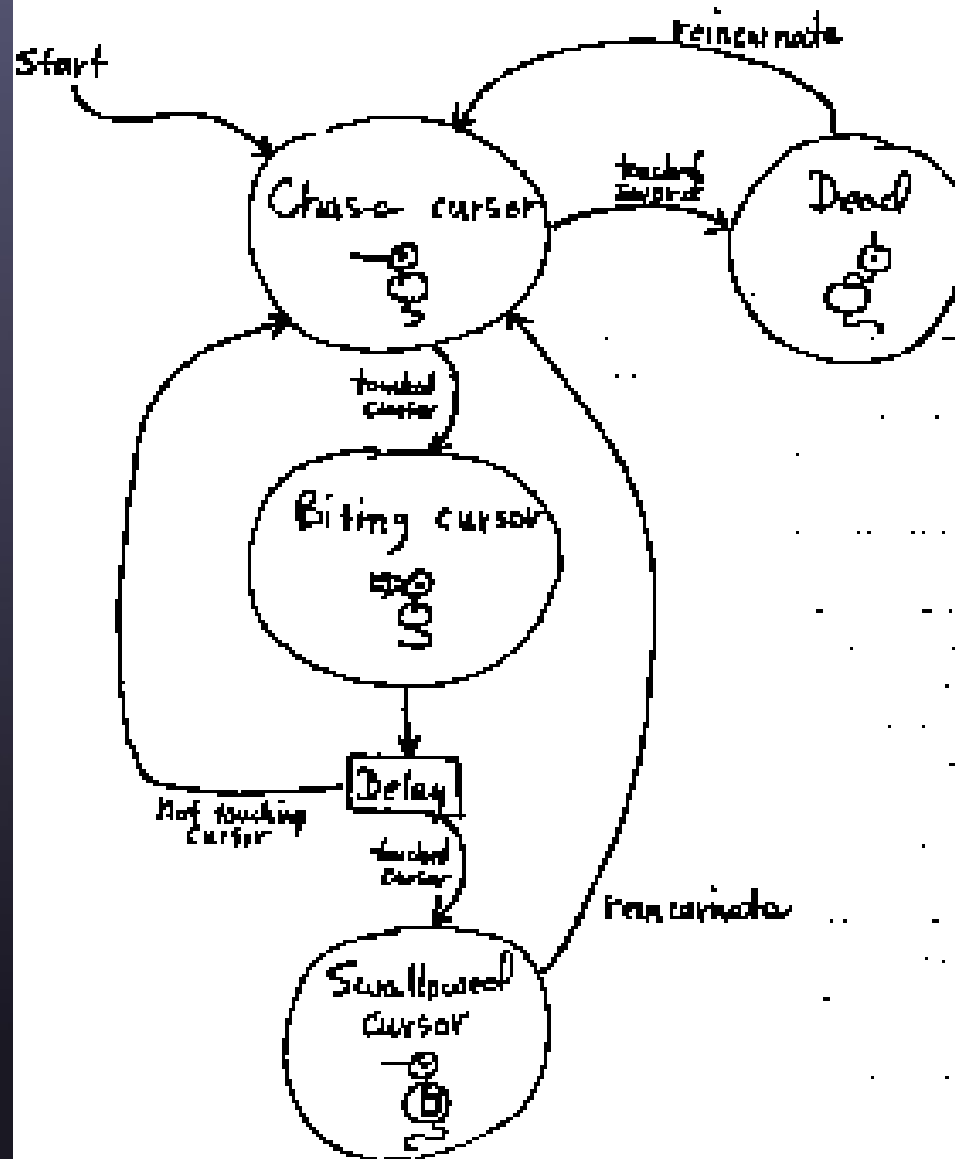 Start
reincarnate
Chase cursor
touched
Dead
touched
cursor
Biting cursor
Delay
Not touching
cursor
touched
cursor
reincarnate
Swallowed
cursor